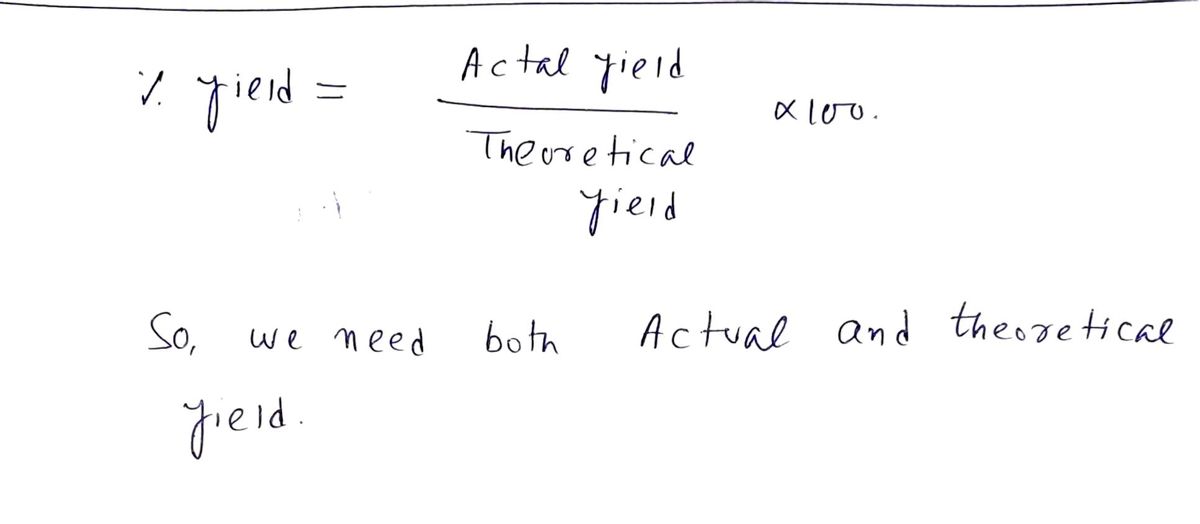 % yield = Actal yield / Theoretical yield × 100.
So, we need both Actual and theoretical
yield.